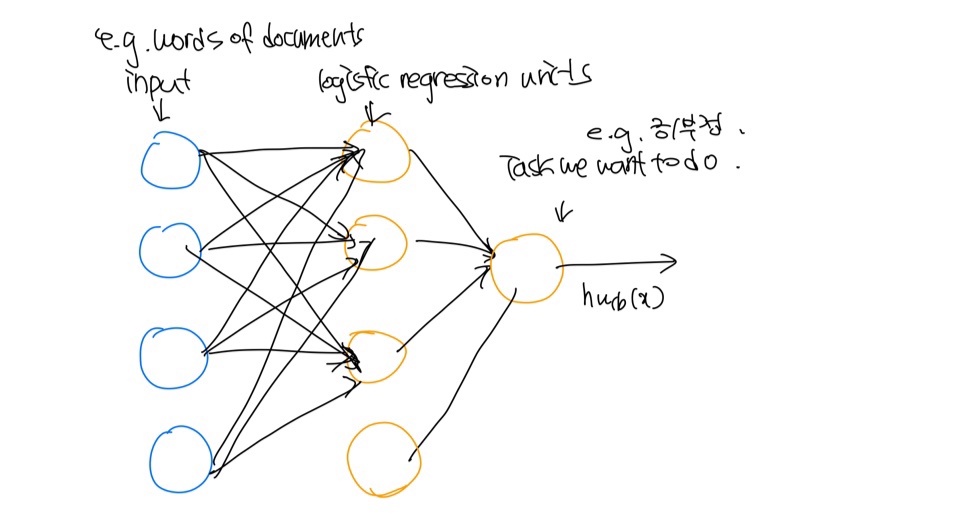 e.g. words of documents
input
logistic regression units
e.g. 긍/부정.
Task we want to do.
hw,b(x)